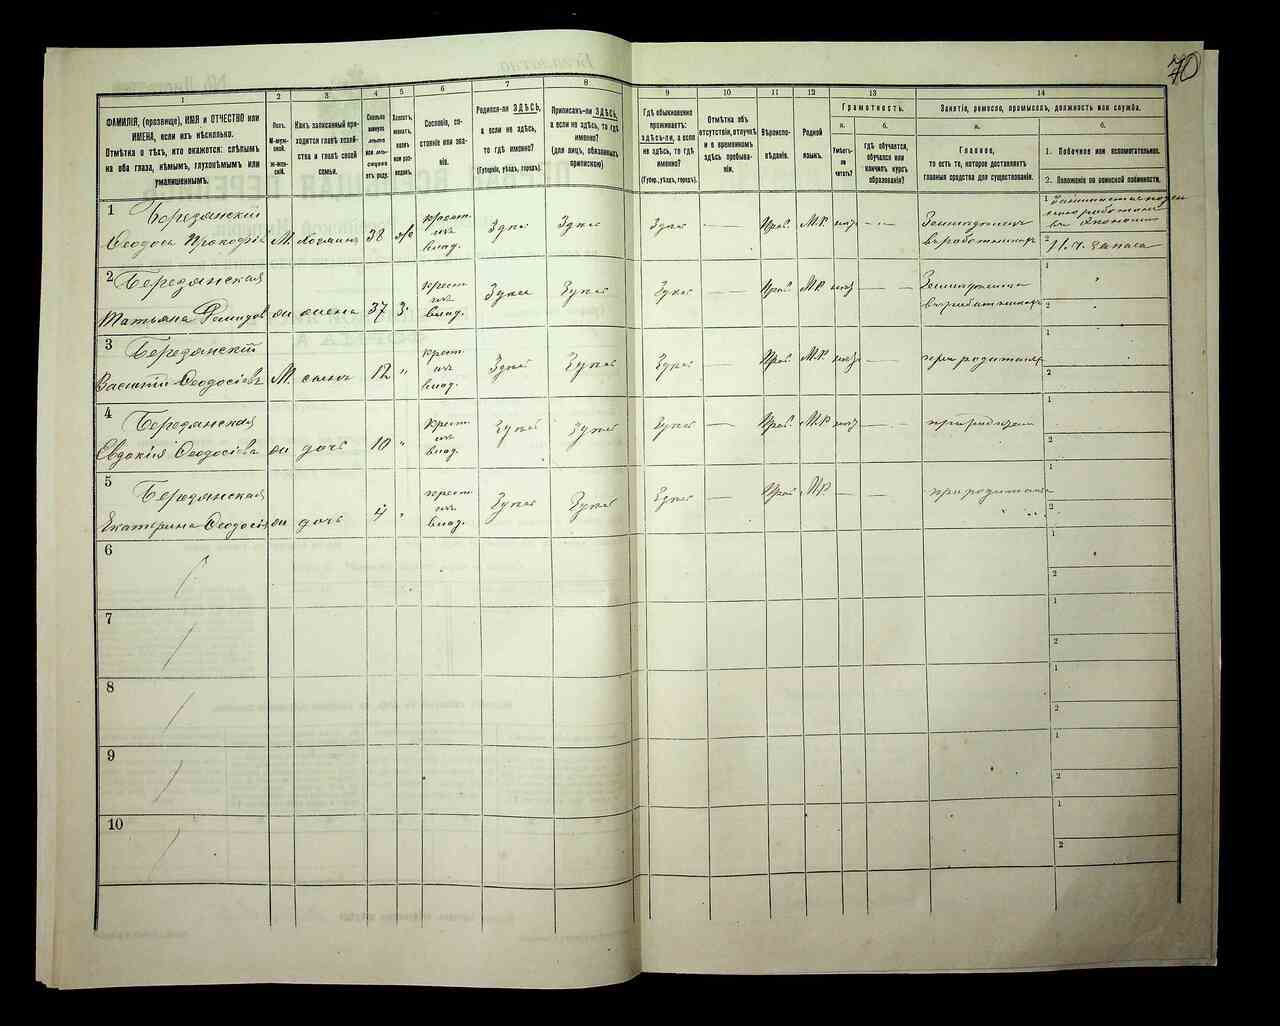 70
1 2 3 4 5 6 7 8 9 10 11 12 13 14
ФАМИЛІЯ, (прозвище), ИМЯ и ОТЧЕСТВО или
ИМЕНА, если ихъ нѣсколько.
Отмѣтка о тѣхъ, кто окажется: слѣпымъ
на оба глаза, нѣмымъ, глухонѣмымъ или
умалишеннымъ.
Полъ.
М-муж-
ской.
Ж-жен-
скій.
Какъ записанный при-
ходится главѣ хозяй-
ства и главѣ своей
семьи.
Сколько
минуло
лѣтъ
или мѣ-
сяцевъ
отъ роду.
Холостъ,
женатъ,
вдовъ
или раз-
веденъ.
Сословіе, со-
стояніе или зва-
ніе.
Родился-ли ЗДѢСЬ,
а если не здѣсь,
то гдѣ именно?
(Губернія, уѣздъ, городъ).
Приписанъ-ли ЗДѢСЬ,
а если не здѣсь, то гдѣ
именно?
(для лицъ, обязанныхъ
припискою)
Гдѣ обыкновенно
проживаетъ:
здѣсь-ли, а если
не здѣсь, то гдѣ
именно?
(Губер., уѣздъ, городъ).
Отмѣтка объ
отсутствіи, отлучкѣ
и о временномъ
здѣсь пребыва-
ніи.
Вѣроиспо-
вѣданіе.
Родной
языкъ.
Грамотность.
а.
Умѣетъ-
ли
читать?
б.
гдѣ обучается,
обучался или
кончилъ курсъ
образованія?
Занятіе, ремесло, промыселъ, должность или служба.
а.
Главное,
то есть то, которое доставляетъ
главныя средства для существованія.
б.
1. Побочное или вспомогательное.
2. Положеніе по воинской повинности.
1 Бередянскій
Ѳеодосъ Прокофіевъ М. хозяинъ 38 ж
крест.
изъ
влад.
Здѣсь Здѣсь Здѣсь — Прав. М.Р. нѣтъ —
Земледѣлецъ
1
2 запаса
2 Бередянская
Татьяна ж жена 37 З.
крест.
изъ
влад.
Здѣсь Здѣсь Здѣсь — Прав. М.Р. нѣтъ —
1 "
2
3 Бередянскій
Василій Ѳеодосіевъ М. сынъ 12 "
крест.
изъ
влад.
Здѣсь Здѣсь Здѣсь — Прав. М.Р. нѣтъ — при родителяхъ
1
2
4 Бередянская
Евдокія Ѳеодосіева ж дочь 10 "
крест.
изъ
влад.
Здѣсь Здѣсь Здѣсь — Прав. М.Р. нѣтъ — при родителяхъ
1
2
5 Бередянская
Екатерина Ѳеодосіева ж дочь 4 "
крест.
изъ
влад.
Здѣсь Здѣсь Здѣсь — Прав. М.Р. — — при родителяхъ
1
2
6
1
2
7
1
2
8
1
2
9
1
2
10
1
2